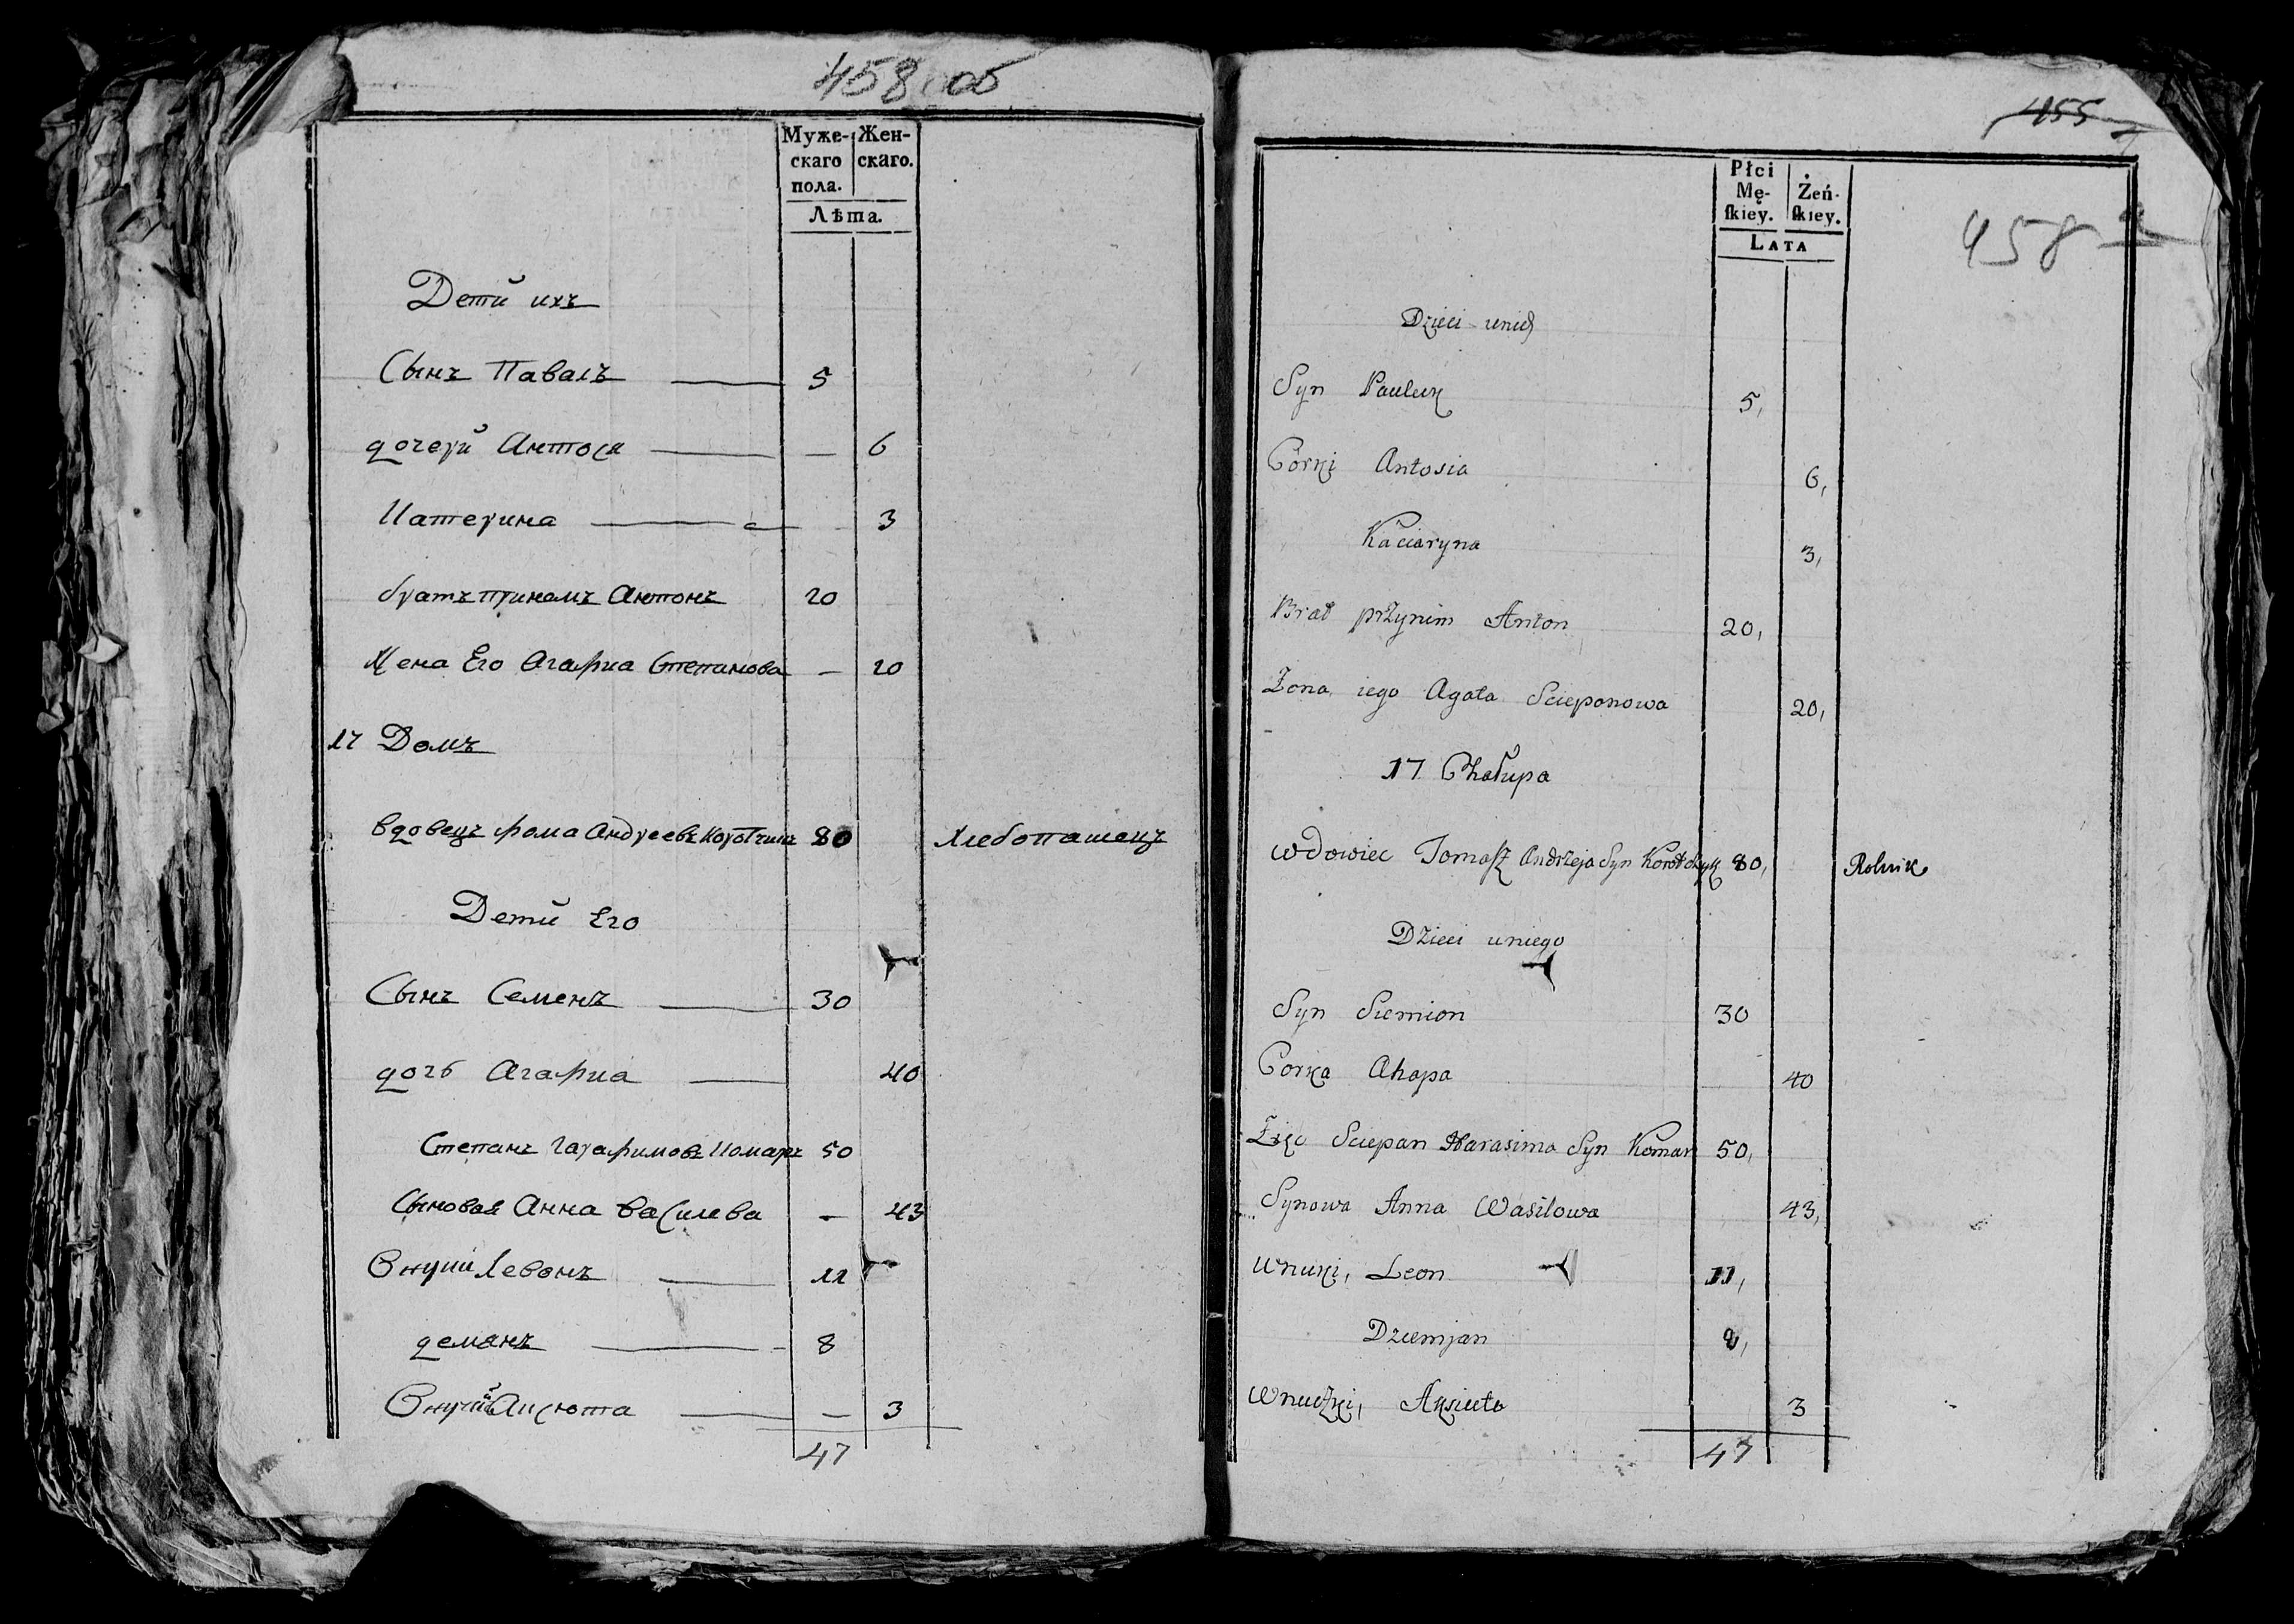 458 об
Муже- Жен-
скаго скаго.
пола.
Лѣта.
Дети ихъ
Сынъ Павалъ 5
дочери Антося — 6
Катерина 3
братъ приномъ Антонъ 20
Жена Его Агафиа Степанова — 20
17 Домъ
вдовецъ фома Андреевъ Коротчикъ 80 Хлебопашецъ
Дети Его
Сынъ Семенъ 30
дочь Агафиа 40
Степанъ Гарасимовъ Комаръ 50
Сыновая Анна Василева — 43
Внуки Левонъ 11
демянъ 8
Аксюта — 3
47
455
Płci
Mę- Żeń-
ſkiey. ſkiey.
LATA
458
Dzieci unich
Syn Pauluk 5,
Córki Antosia 6,
Kaciaryna 3,
Brat przynim Anton 20,
Żona iego Agata Scieponowa 20,
17 Chałupa
Wdowiec Tomaſz Andrzeja Syn Korotczyk 80, Rolnik
Dzieci uniego
Syn Siemion 30
Corka Ahapa 40
Zięć Sciepan Harasima Syn Komar 50,
Synowa Anna Wasilowa 43,
Wnuki, Leon 11,
Dziemjan 8,
Wnuczki, Aksiuta 3
47